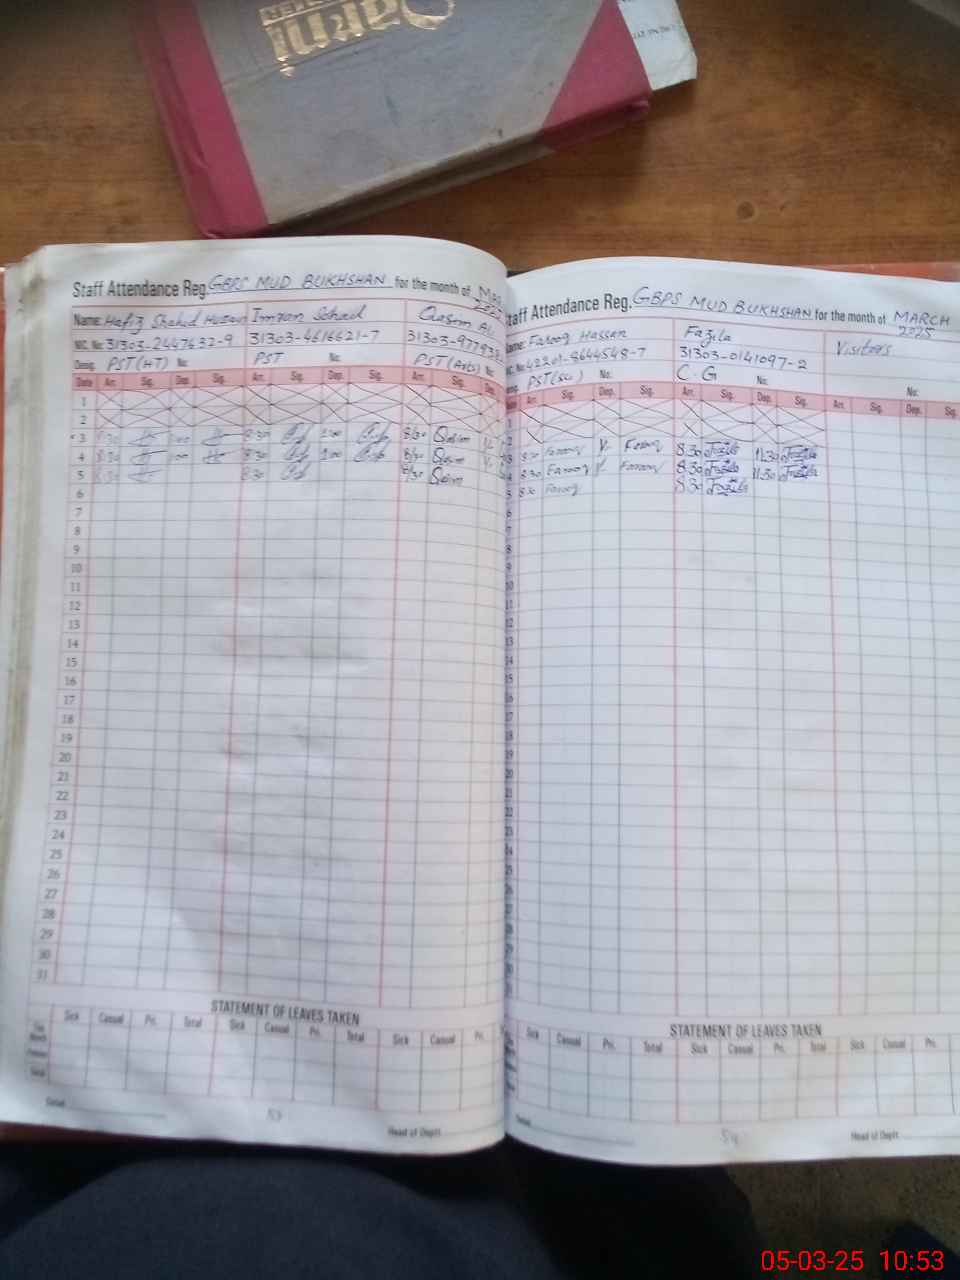 Sarhi
Staff Attendance Reg. GBPS MUD BUKHSHAN for the month of
Name: Hafiz Shahid Hussain Imran Sohail Qasim Ali
NIC. No: 31303-2447632-9 31303-4616621-7
Desig. PST(HT) No: PST No: PST(Arts) No:
Date Arr. Sig. Dep. Sig. Arr. Sig. Dep. Sig. Arr. Sig. Dep.
1
2
3 8:30 8:30 8/30 Qasim
4 8:30 8:30 8/30 Qasim
5 8:30 8:30 8/30 Qasim
6
7
8
9
10
11
12
13
14
15
16
17
18
19
20
21
22
23
24
25
26
27
28
29
30
31
STATEMENT OF LEAVES TAKEN
Sick Casual Pri. Total Sick Casual Pri. Total Sick Casual Pri.
Head of Deptt.
Staff Attendance Reg. GBPS MUD BUKHSHAN for the month of MARCH
2025
Name: Farooq Hassan Fazila Visitors
NIC. No: 42201-8644548-7 31303-0141097-2
PST(Sci) No: C.G No: No:
Arr. Sig. Dep. Sig. Arr. Sig. Dep. Sig. Arr. Sig. Dep. Sig.
1
2
3 Farooq Farooq 8:30 Fazila 11:30 Fazila
4 8:30 Farooq Farooq 8:30 Fazila 11:30 Fazila
5 8:30 Farooq 8:30 Fazila
6
7
8
9
10
11
12
13
14
15
16
17
18
19
20
21
22
23
24
25
26
27
28
29
30
31
STATEMENT OF LEAVES TAKEN
Sick Casual Pri. Total Sick Casual Pri. Total Sick Casual Pri.
54
Head of Deptt.
05-03-25 10:53